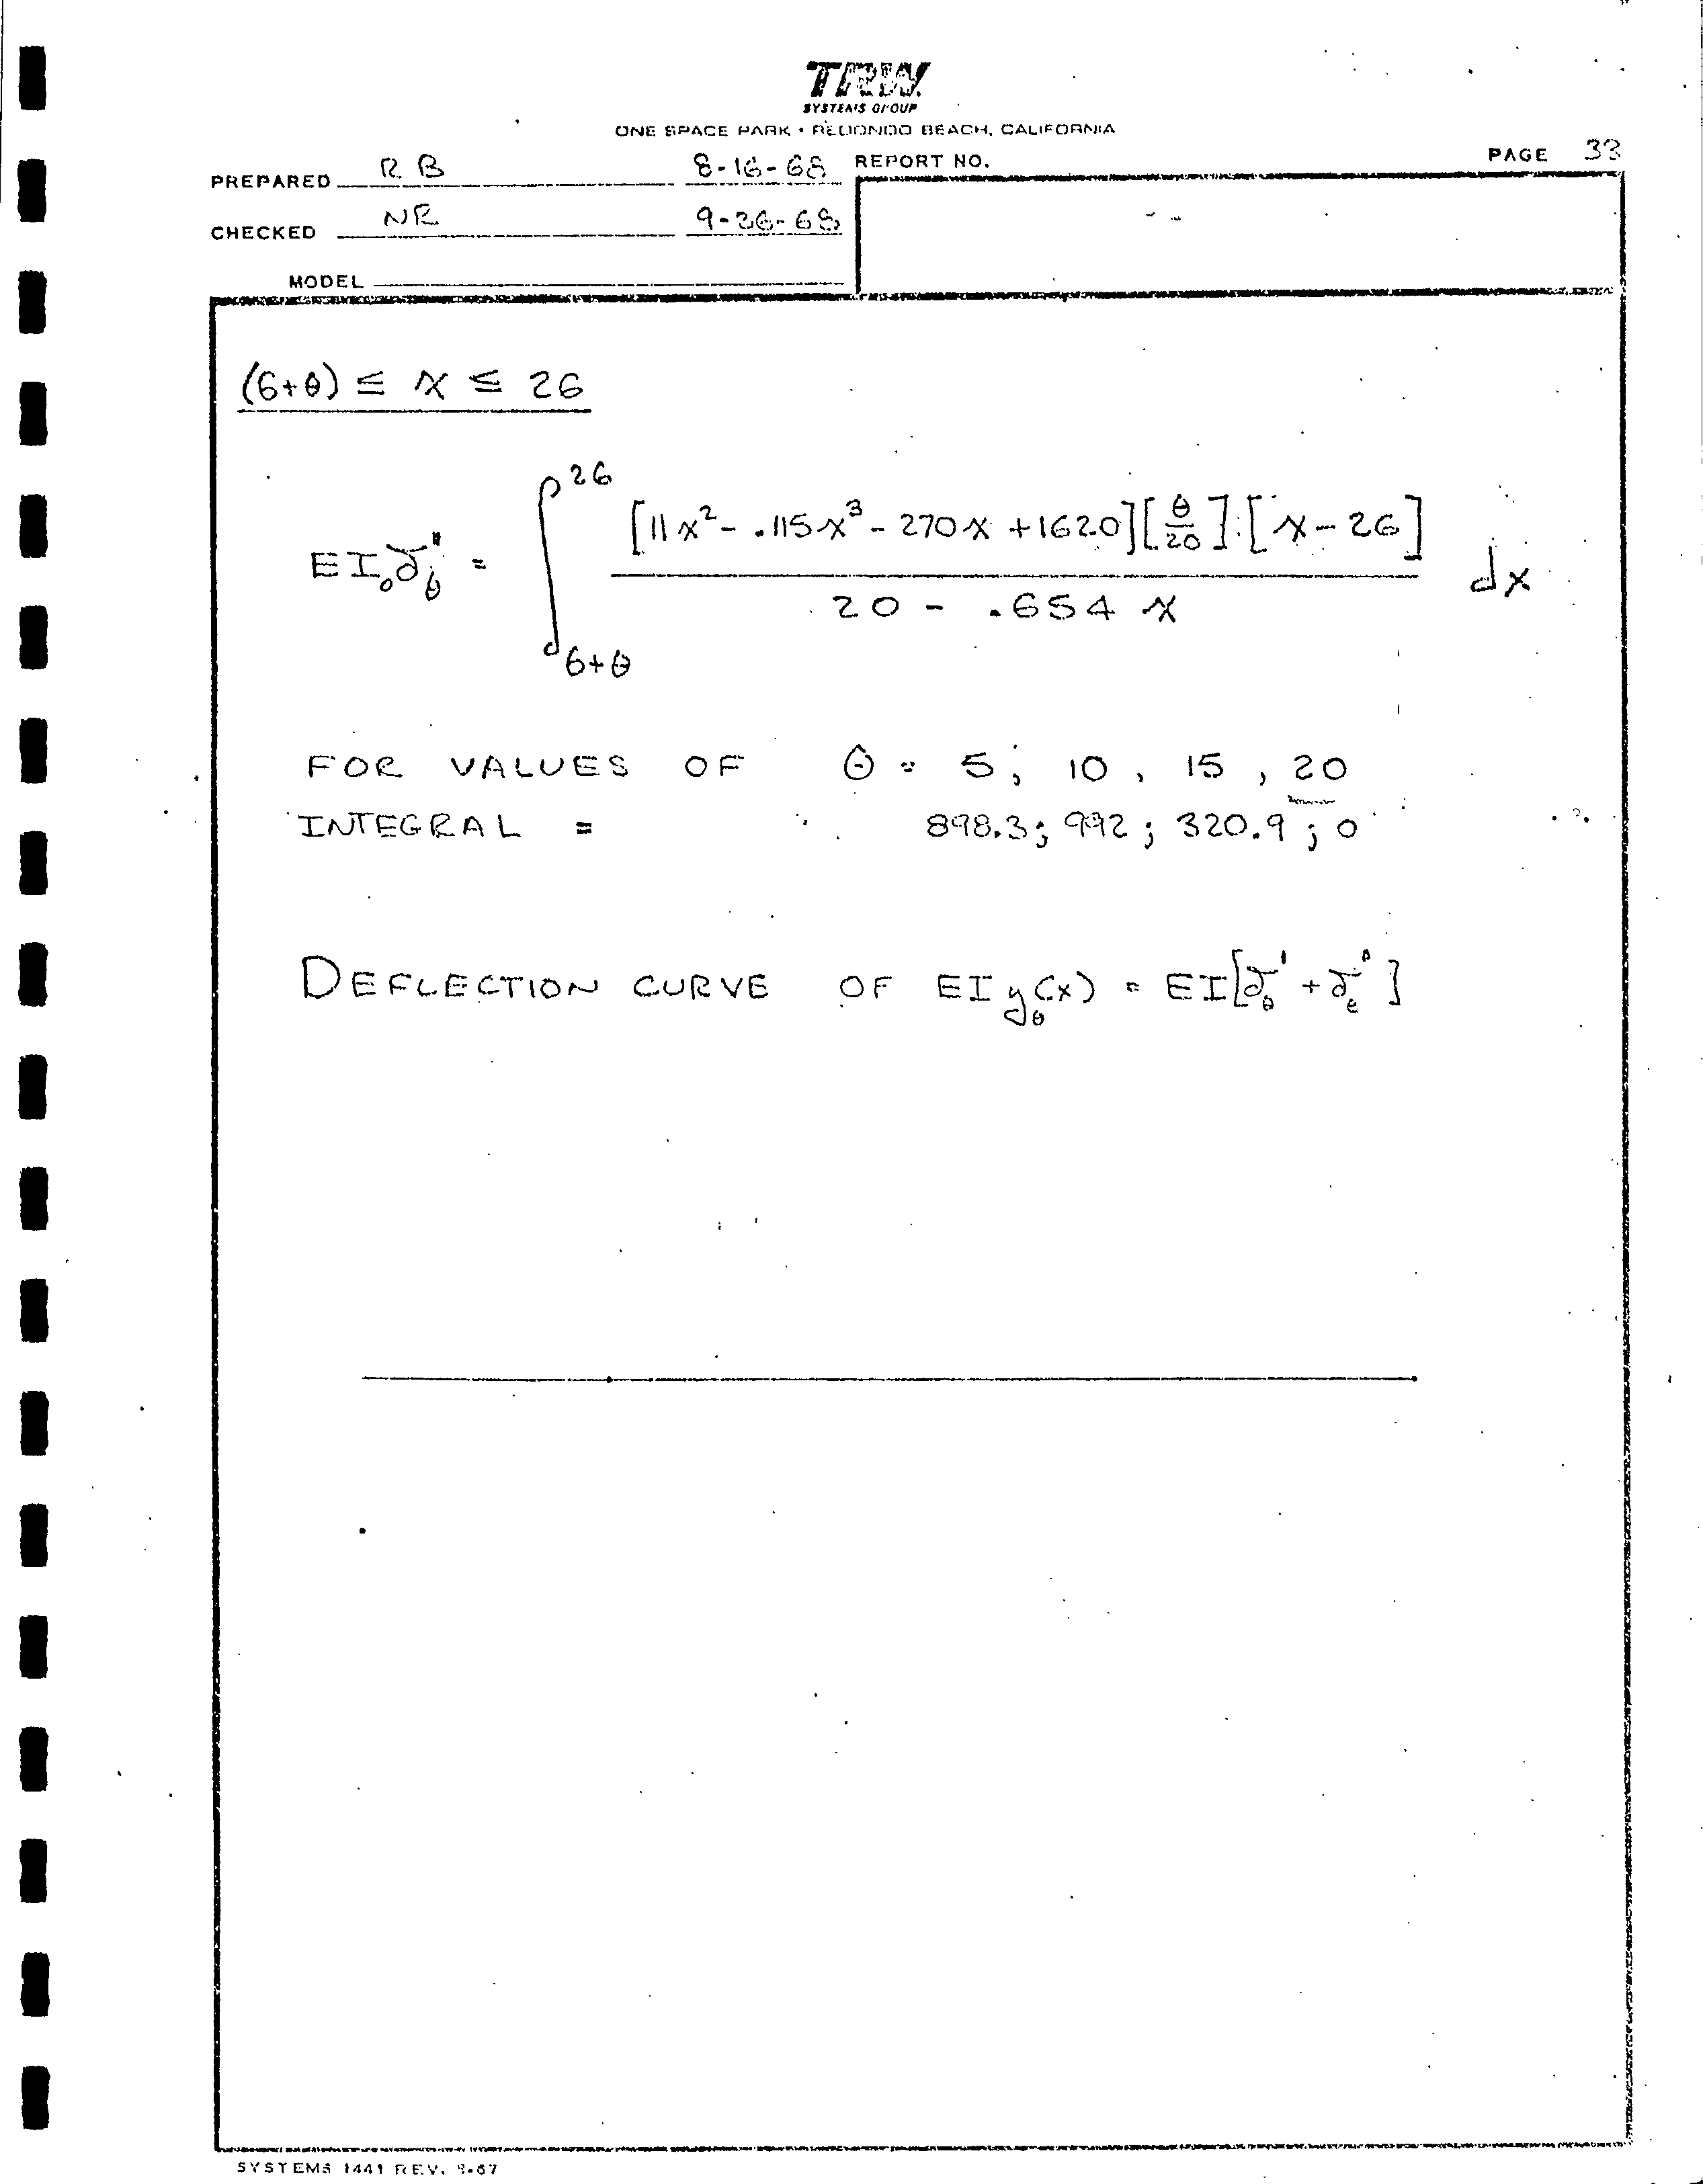 TRW
SYSTEMS GROUP
ONE SPACE PARK • REDONDO BEACH, CALIFORNIA
PREPARED R B 8-16-68 REPORT NO. PAGE 33
CHECKED NR 9-26-68
MODEL
(6+θ) ≤ x ≤ 26
EI₀δ_θ" = ∫_{6+θ}^{26} [11x² - .115x³ - 270x + 1620][θ/20][x - 26] / (20 - .654 x) dx
FOR VALUES OF θ = 5, 10, 15, 20
INTEGRAL = 898.3; 992; 320.9; 0
DEFLECTION CURVE OF EI y_θ(x) = EI[δ_θ' + δ_θ"]
SYSTEMS 1441 REV. 9-67